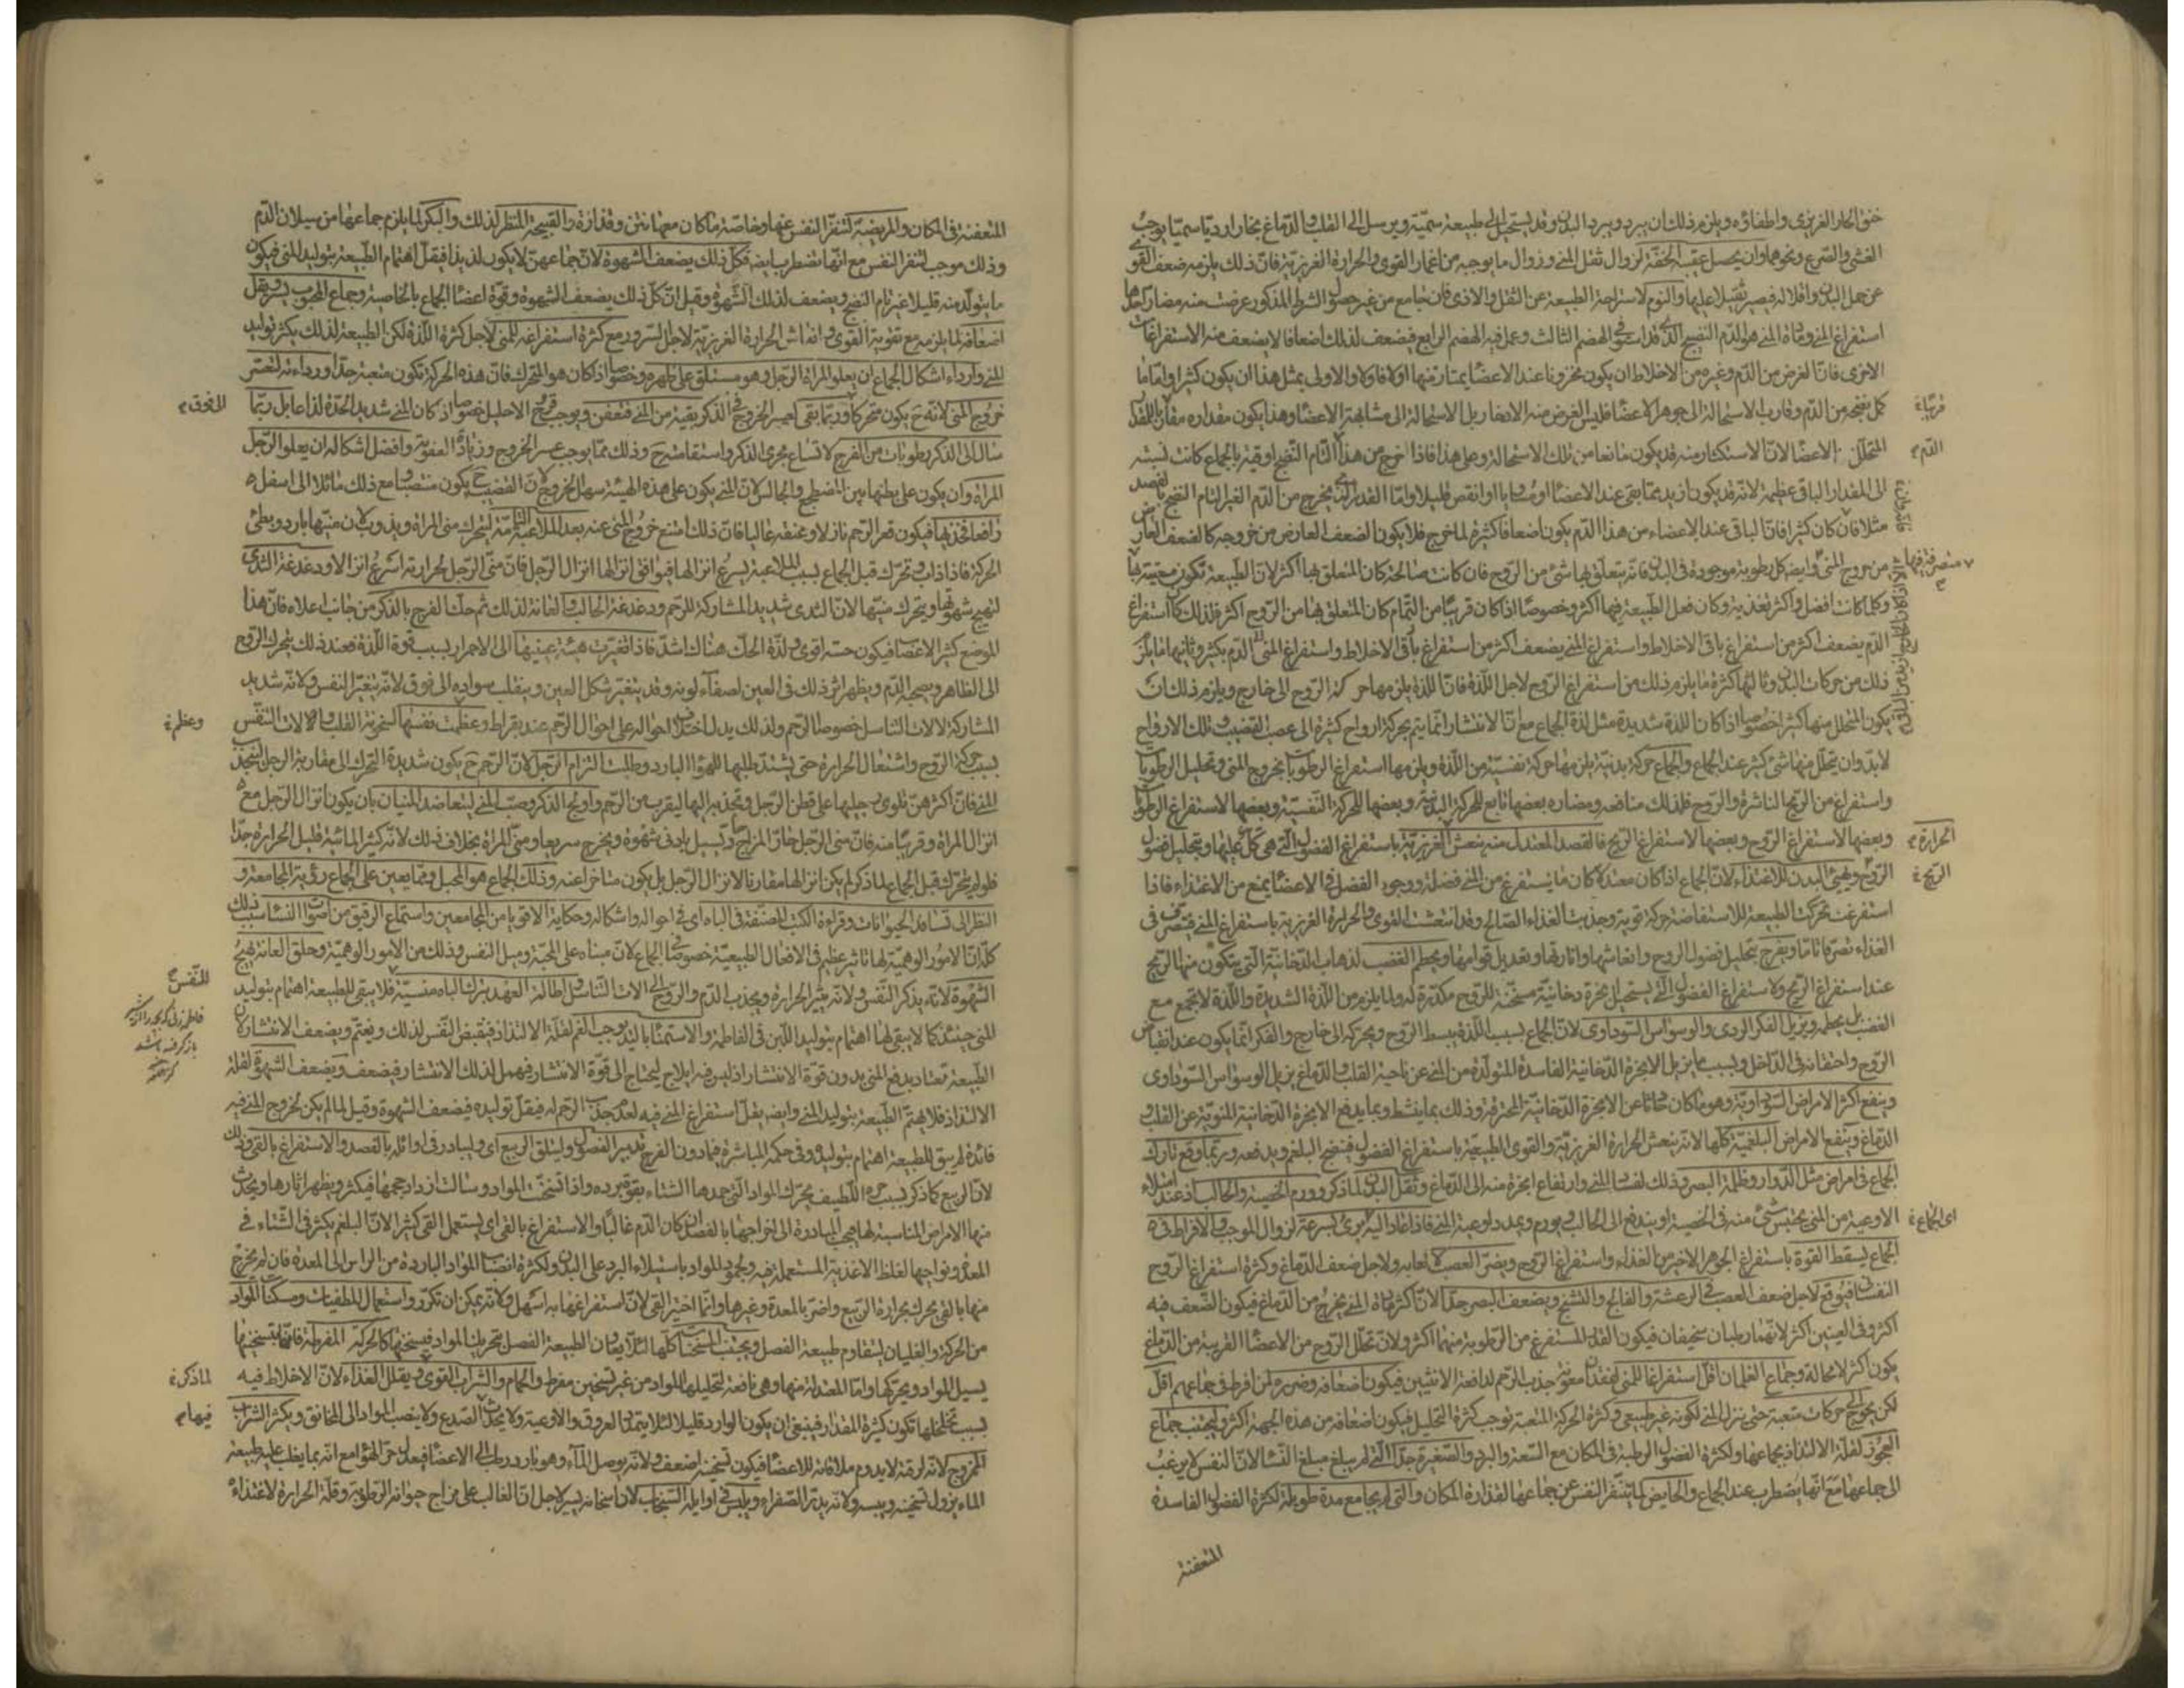 خنق الحار الغريزى واطفاؤه ويلزم ذلك ان يبرد ويبرد البدن وقد يستحيل الى طبيعة سمّية ويرسل الى القلب والدماغ بخارا رديّا سمّيّا يوجب
الغشى والصرع ونحوهما وان يحصل عقيبه الخفّة لزوال ثقل المنى وزوال ما يوجبه من انغمار القوى والحرارة الغريزية فانّ ذلك يلزمه ضعف القوى
عن حمل البدن واقلاله فيصير ثقيلا عليها والنوم لاستراحة الطبيعة عن الثقل والاذى فان جامع من غير حصول الشرط المذكور عرضت منه مضار احدها
استفراغ المنى ومادة المنى هو الدم النضيج الذى قد استوفى الهضم الثالث وعمل فيه الهضم الرابع فيضعف لذلك اضعافا لا يضعف منه الاستفراغات
الاخرى فانّ الغرض من الدم وغيره من الاخلاط ان يكون مخزونا عند الاعضاء يمتاز منها اولا فاولا والاولى بمثل هذا ان يكون كثيرا وامّا ما
كمل نضجه من الدم وقارب الاستحالة الى جوهر الاعضاء فليس الغرض منه الادخار بل الاستحالة الى مشابهة الاعضاء وهذا يكون مقداره مقاربا للمقدار
المتحلّل من الاعضاء لانّ الاستكثار منه قد يكون مانعا من تلك الاستحالة وعلى هذا فاذا خرج من هذا التام النضج اوقية بالجماع كانت نسبته
الى المقدار الباقى عظيمة لانّه قد يكون ازيد ممّا بقى عند الاعضاء او مساويا او انقص قليلا وامّا القدر الذى يخرج من الدم الغير التام النضج بالفصد
مثلا فان كان كثيرا فانّ الباقى عند الاعضاء من هذا الدم يكون اضعافا كثيرة لما خرج فلا يكون الضعف العارض من خروجه كالضعف العارض
من خروج المنى وايضا كل رطوبة موجودة فى البدن فانّه يتعلّق بها شئ من الروح فان كانت صالحة كان المتعلق بها اكثر لانّ الطبيعة تكون معتنية بها
وكلما كانت افضل واكثر تغذية وكان فعل الطبيعة فيها اكثر وخصوصا اذا كان قريبا من التمام كان المتعلق بها من الروح اكثر فلذلك كان استفراغ
الدم يضعف اكثر من استفراغ باقى الاخلاط واستفراغ المنى يضعف اكثر من استفراغ باقى الاخلاط واستفراغ الدم بكثير وثانيها ما يلزم
ذلك من حركات البدن وثالثها كثرة ما يلزم ذلك من استفراغ الروح لاجل اللذة فانّ اللذة يلزمها حركة الروح الى خارج ويلزم ذلك ان
يكون المتحلل منها كثيرا خصوصا اذا كان اللذة شديدة مثل لذة الجماع مع انّ الانتشار انّما يتم بحركة ارواح كثيرة الى عصب القضيب وتلك الارواح
لابد وان يتحلل منها شئ كثير عند الجماع والجماع حركة بدنية يلزمها حركة نفسية من اللذة ويلزمها استفراغ الرطوبات بخروج المنى وتحليل الرطوبات
واستفراغ من الريح الناشرة والروح فلذلك منافعه ومضاره بعضها تابع للحركة البدنية وبعضها للحركة النفسية وبعضها لاستفراغ الرطوبات
وبعضها لاستفراغ الروح وبعضها لاستفراغ الريح فالقصد المعتدل منه ينعش الغريزية باستفراغ الفضول التى هى كلّ عليها وبتحليل فضول
الروح ويهيّئ البدن للاغتذاء لانّ الجماع اذا كان معتدلا كان ما يستفرغ من المنى فضلة ووجود الفضل فى الاعضاء يمنع من الاغتذاء فاذا
استفرغت تحركت الطبيعة للاستفاضة حركة قوية وجذبت الغذاء الصالح وقد انتعشت القوى والحرارة الغريزية باستفراغ المنى فيتصرف فى
الغذاء تصرفا تاما ويفرح بتحليل فضول الروح وانعاشها واثارتها وتعديل قوامها ويحطم الغضب لذهاب الدخانية التى يتكون منها الريح
عند استفراغ الريح ولاستفراغ الفضول التى يستحيل بخرة دخانية مسخّنة للروح مكدّرة له ولما يلزم من اللذة الشديدة واللذة لا تجتمع مع
الغضب بل يحطمه ويزيل الفكر الردى والوسواس السوداوى لانّ الجماع بسبب اللذة يبسط الروح ويحركه الى خارج والفكر انّما يكون عند انقباض
الروح واحتقانه فى الداخل وبسبب ما يزيل الابخرة الدخانية الفاسدة المتولّدة من المنى عن ناحية القلب والدماغ يزيل الوسواس السوداوى
وينفع اكثر الامراض السوداوية وهو ما كان حادثا عن الابخرة الدخانية المحترقة وذلك بما ينشط وبما يدفع الابخرة الدخانية المنوية عن القلب
الدماغ وينفع الامراض البلغمية كلّها لانّه ينعش الحرارة الغريزية والقوى الطبيعية باستفراغ الفضول فينضج البلغم ويدفعه وربما وقع تارك
الجماع فى امراض مثل الدوار وظلمة البصر وذلك لفساد المنى وارتفاع ابخرة منه الى الدماغ وثقل البدن لما ذكر وورم الخصية والحالب اذ عند امتلاء
الاوعية من المنى يحتبس شئ منه فى الخصية او يندفع الى الحالب فيورم ويمدد اوعية المنى فاذا عاد اليه برئ بسرعة لزوال الموجب والافراط فى
الجماع يسقط القوة باستفراغ الجوهر الاخير من الغذاء واستفراغ الروح ويضرّ العصب لاتعابه ولاجل ضعف الدماغ وكثرة استفراغ الروح
النفسانى فيوقع لاجل ضعف العصب فى الرعشة والفالج والتشنج ويضعف البصر جدا لانّ اكثر مادة المنى يخرج من الدماغ فيكون الضعف فيه
اكثر وفى العينين اكثر لانّهما رطبان سخيفان فيكون القدر المستفرغ من الرطوبة منهما اكثر ولانّ تحلل الروح من الاعضاء القريبة من الدماغ
يكون اكثر لا محالة وجماع الغلمان اقلّ استفراغا للمنى لفقدان معونة جذب الرحم لدافعة الانثيين فيكون اضعافه وضرره لمن افرط فى جماعهم اقل
لكن يحوج الى حركات متعبة حتى ينزل المنى لكونه غير طبيعى وكثرة الحركة المتعبة توجب كثرة التحليل فيكون اضعافه من هذه الجهة اكثر وليجتنب جماع
العجوز لقلة الالتذاذ بجماعها ولكثرة الفضول الرطبة فى المكان مع السعة والبرد والصغيرة جدا التى لم يبلغ مبلغ النساء لانّ النفس لا يرغب
الى جماعها مع انّها يضطرب عند الجماع والحايض لما يتنفر النفس عن جماعها لقذارة المكان والتى لم يجامع مدة طويلة لكثرة الفضول الفاسدة
المتعفنة
قريبا
الدم
الحرارة
الريح
اى الجماع
المتعفنة فى المكان والمريضة لتنفر النفس عنها وخاصّة ما كان معها نتن وقذارة والقبيحة المنظر لذلك والبكر لما يلزم جماعها من سيلان الدم
وذلك موجب لتنفر النفس مع انّها تضطرب ايضا فكلّ ذلك يضعف الشهوة لانّ جماعهن لا يكون لذيذا فيقلّ اهتمام الطبيعة بتوليد المنى فيكون
ما يتولّد منه قليلا غير تام النضج ويضعف لذلك الشهوة وقيل انّ كلّ ذلك يضعف الشهوة وقوة اعضاء الجماع بالخاصية وجماع المحبوب يسر ويقل
اضعافه لما يلزمه مع تقوية القوى وانعاش الحرارة الغريزية لاجل السرور مع كثرة استفراغه للمنى لاجل كثرة اللذة لكن الطبيعة لذلك يكثر توليد
المنى وارداء اشكال الجماع ان يعلو المراة الرجل وهو مستلق على ظهره وخصوصا اذا كان هو المتحرك فانّ هذه الحركة تكون متعبة جدا ورداءته لتعسّر
خروج المنى لانّه ح يكون متحركا وربما بقى لعسر الخروج فى الذكر بقية من المنى فتعفن ويوجب قروح الاحليل خصوصا اذ كان المنى شديد الحدة لذاعا بل ربّما
سال الى الذكر رطوبات من الفرج لاتساع مجرى الذكر واستقامته ح وذلك ممّا يوجب عسر الخروج وزيادة العفونة وافضل اشكاله ان يعلو الرجل
المراة وان يكون على بطنها بين المضطجع والجالس لانّ المنى يكون على هذه الهيئة سهل الخروج لانّ القضيب ح يكون منتصبا ومع ذلك مائلا الى اسفل
رافعا فخذيها فيكون قعر الرحم نازلا وعنقه عاليا فانّ ذلك امنع خروج المنى عنه بعد الملاعبة التامة ليتحرك منى المراة ويذوب لانّ منيّها بارد وبطئ
الحركة فاذا ذاب وتحرك قبل الجماع بسبب الملاعبة يسرع انزالها فيوافق انزالها انزال الرجل فانّ منى الرجل لحرارته اسرع انزالا ودغدغة الثدى
لتهيج شهوتها ويتحرك منيّها لانّ الثدى شديد المشاركة للرحم ودغدغة الحالب والعانة لذلك ثم حكّ الفرج بالذكر من جانب اعلاه فانّ هذا
الموضع كثير الاعصاب فيكون حسّه اقوى ولذّة الحكّ هناك اشدّ فاذا تغيّرت هيئة عينيها الى الاحمرار بسبب قوة اللذة فعند ذلك يتحرك الروح
الى الظاهر ويصحبه الدم ويظهر اثر ذلك فى العين لصفاء لونه وقد يتغيّر شكل العين وينقلب سواده الى فوق لانّه يتغيّر النفس ولانّه شديد
المشاركة لالات التناسل خصوصا الرحم ولذلك يدل اختلاف احواله على احوال الرحم عند بقراط وعظمت نفسها لسخونة القلب والالات التنفس
بسبب حركة الروح واشتعال الحرارة حتى يشتد طلبها للهواء البارد وطلبت التزام الرجل لانّ الرحم ح يكون شديدة التحرك الى مقاربة الرجل لتجذب
المنى فانّ اكثرهنّ تلوى رجليها على قطن الرجل وتجذبه اليها ليقرب من الرحم واولج الذكر وصبّ المنى ليتعاضد المنيان بان يكون انزال الرجل مع
انزال المراة وقريبا منه فانّ منى الرجل حار المزاج ويسيل بادنى شهوة ويخرج سريعا ومنى المراة بخلاف ذلك لانّه كثير المائية قليل الحرارة جدا
فلو لم يتحرك قبل الجماع لما ذكر لم يكن انزالها مقارنا لانزال الرجل بل يكون متاخرا عنه وذلك الجماع هو المحبل وممّا يعين على الجماع رؤية المجامعة و
النظر الى تسافد الحيوانات وقراءة الكتب المصنّفة فى الباه اى فى احواله واشكاله وحكاية الاقويا من المجامعين واستماع الرقيق من اصوات النساء بسبب ذلك
كلّه انّ الامور الوهمية لها تاثير عظيم فى الافعال الطبيعية خصوصا فى الجماع لانّ مبناه على المحبّة وميل النفس وذلك من الامور الوهمية وحلق العانة يهيّج
الشهوة لانّه يذكر النفس ولانّه يثير الحرارة ويجذب الدم والروح الى الات التناسل واطالة العهد بترك الباه منسيّة فلا يبقى للطبيعة اهتمام بتوليد
المنى حينئذ كما لا يبقى لها اهتمام بتوليد اللبن فى الفاطمة والاستمناء باليد يوجب الغم لقلّة الالتذاذ فينقبض النفس لذلك ويغتم ويضعف الانتشار لان
الطبيعة تعتاد بدفع المنى بدون قوة الانتشار اذ ليس فيه ايلاج ليحتاج الى قوّة الانتشار فيهمل لذلك الانتشار فيضعف ويضعف الشهوة لقلة
الالتذاذ فلا يهتم الطبيعة بتوليد المنى وايضا يقل استفراغ المنى فيه لعدم جذب الرحم له فيقلّ توليده فيضعف الشهوة وقيل لما لم يكن لخروج المنى فيه
فائدة لم يبق للطبيعة اهتمام بتوليده وفى حكمه المباشرة فيما دون الفرج تدبير الفصول وليتلق الربيع اى وليبادر فى اوائله بالفصد والاستفراغ بالقى وذلك
لانّ الربيع كما ذكر بسبب حره اللطيف محرّك المواد التى جمدها الشتاء بقوة برده واذا تسخنت المواد وسالت ازداد حجمها فيكثر ويظهر اثارها ويحدث
منها الامراض المناسبة لها فيجب المبادرة الى اخراجها بالفصد ان كان الدم غالبا والاستفراغ بالقى اى يستعمل القى كثيرا لانّ البلغم يكثر فى الشتاء فى
المعدة ونواحيها لغلظ الاغذية المستعملة فيه ولجمود المواد باستيلاء البرد على البدن ولكثرة انصباب المواد الباردة من الراس الى المعدة فان لم يخرج
منها بالقى تحرك بحرارة الربيع واضرّ بالمعدة وغيرها وانّما اختير القى لانّ استفراغها به اسهل ولانّه يمكن ان تكرر واستعمال المطفيات ومسكنات المواد
من الحركة والغليان ليتقاوم طبيعة الفصل ويجتنب المسخنات كلّها لئلا يعاون الطبيعة الفصل بتحريك المواد فيسخنها كالحركة المفرطة فانّها بتسخينها
يسيل المواد ويحركها وامّا المعتدلة منها وهى نافعة لتحليلها المواد من غير تسخين مفرط والحمام والشراب القوى ويقلل الغذاء لانّ الاخلاط فيه
بسبب تخلخلها تكون كثيرة المقدار فينبغى ان يكون الوارد قليلا لئلا يتمدّد العروق والاوعية ولا يحدث الصدع ولا ينصب المواد الى المخانق ويكثر الشراب
الممزوج لانّه لرقته لا يدوم ملاقاته للاعضاء فيكون تسخينه اضعف ولانّه يوصل الماء وهو بارد رطب الى الاعضاء فيعدل حر الهواء مع انّه بما يغلب عليه طبيعة
الماء يزول تسخينه ويبسه ولانّه يدرّ الصفراء ويلبس فى اوايله السنجاب لانّ اسخانه يسير لاجل انّ الغالب على مزاج حيوانه الرطوبة وقلّة الحرارة لاغتذائه
الى فوق
وعظم
للنفس
لما ذكر
فيها